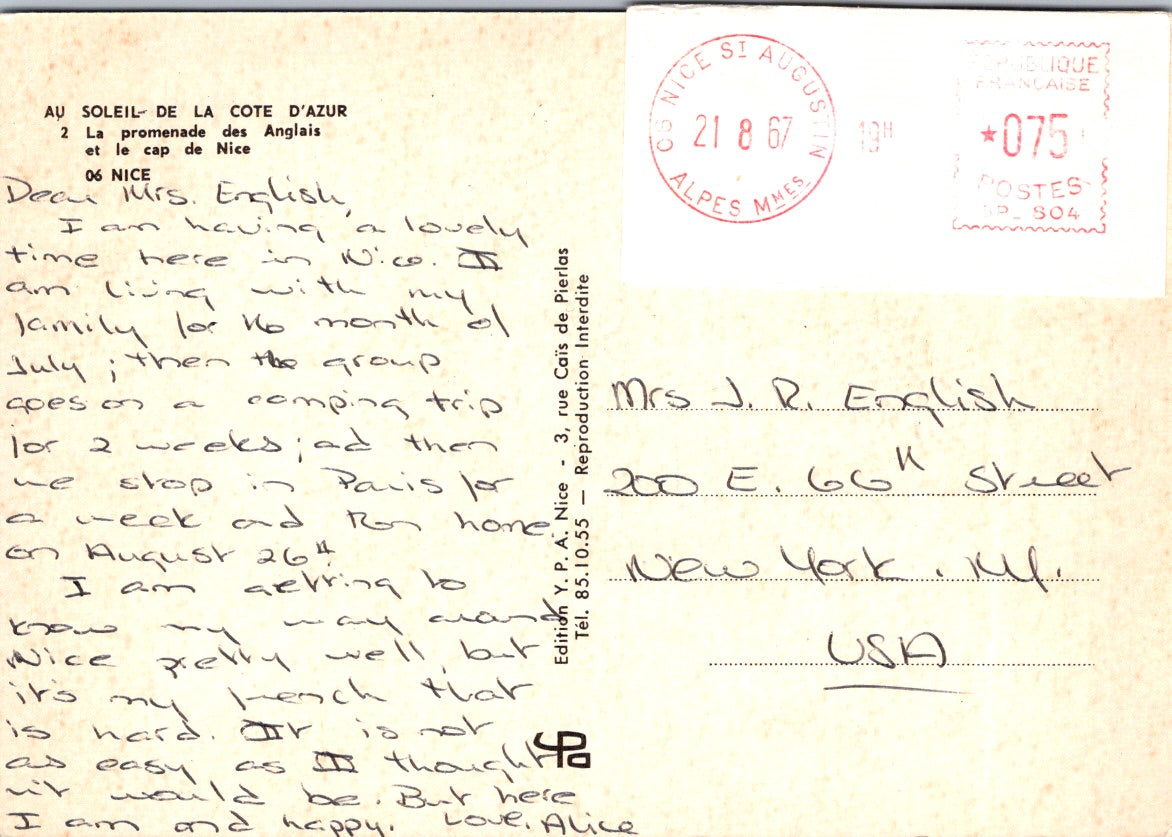 AU SOLEIL DE LA COTE D'AZUR
2 La promenade des Anglais
et le cap de Nice
06 NICE
Dear Mrs. English,
I am having a lovely
time here in Nice. I
am living with my
family for the month of
July; then the group
goes on a camping trip
for 2 weeks; ad then
we stop in Paris for
a week and then home
on August 26th
I am getting to
know my way around
Nice pretty well, but
it's my french that
is hard. It is not
as easy as I thought
it would be. But here
I am and happy. Love, Alice
Edition Y. P. A. Nice - 3, rue Caïs de Pierlas
Tél. 85.10.55 — Reproduction Interdite
ypa
06 NICE ST AUGUSTIN
21 8 67
ALPES MMES
19H
REPUBLIQUE
FRANCAISE
*075
POSTES
SP_ S04
Mrs J. R. English
200 E. 66th Street
New York, N.Y.
USA